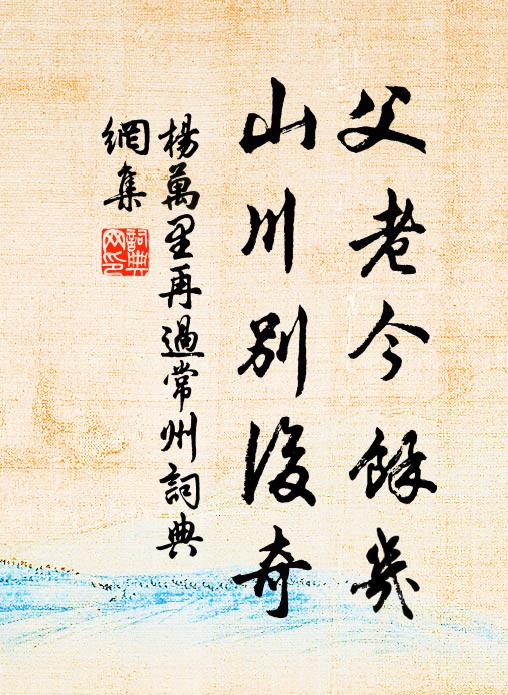 父老今餘幾
山川別後奇
楊萬里再過常州詞典
網集
詞典
網印